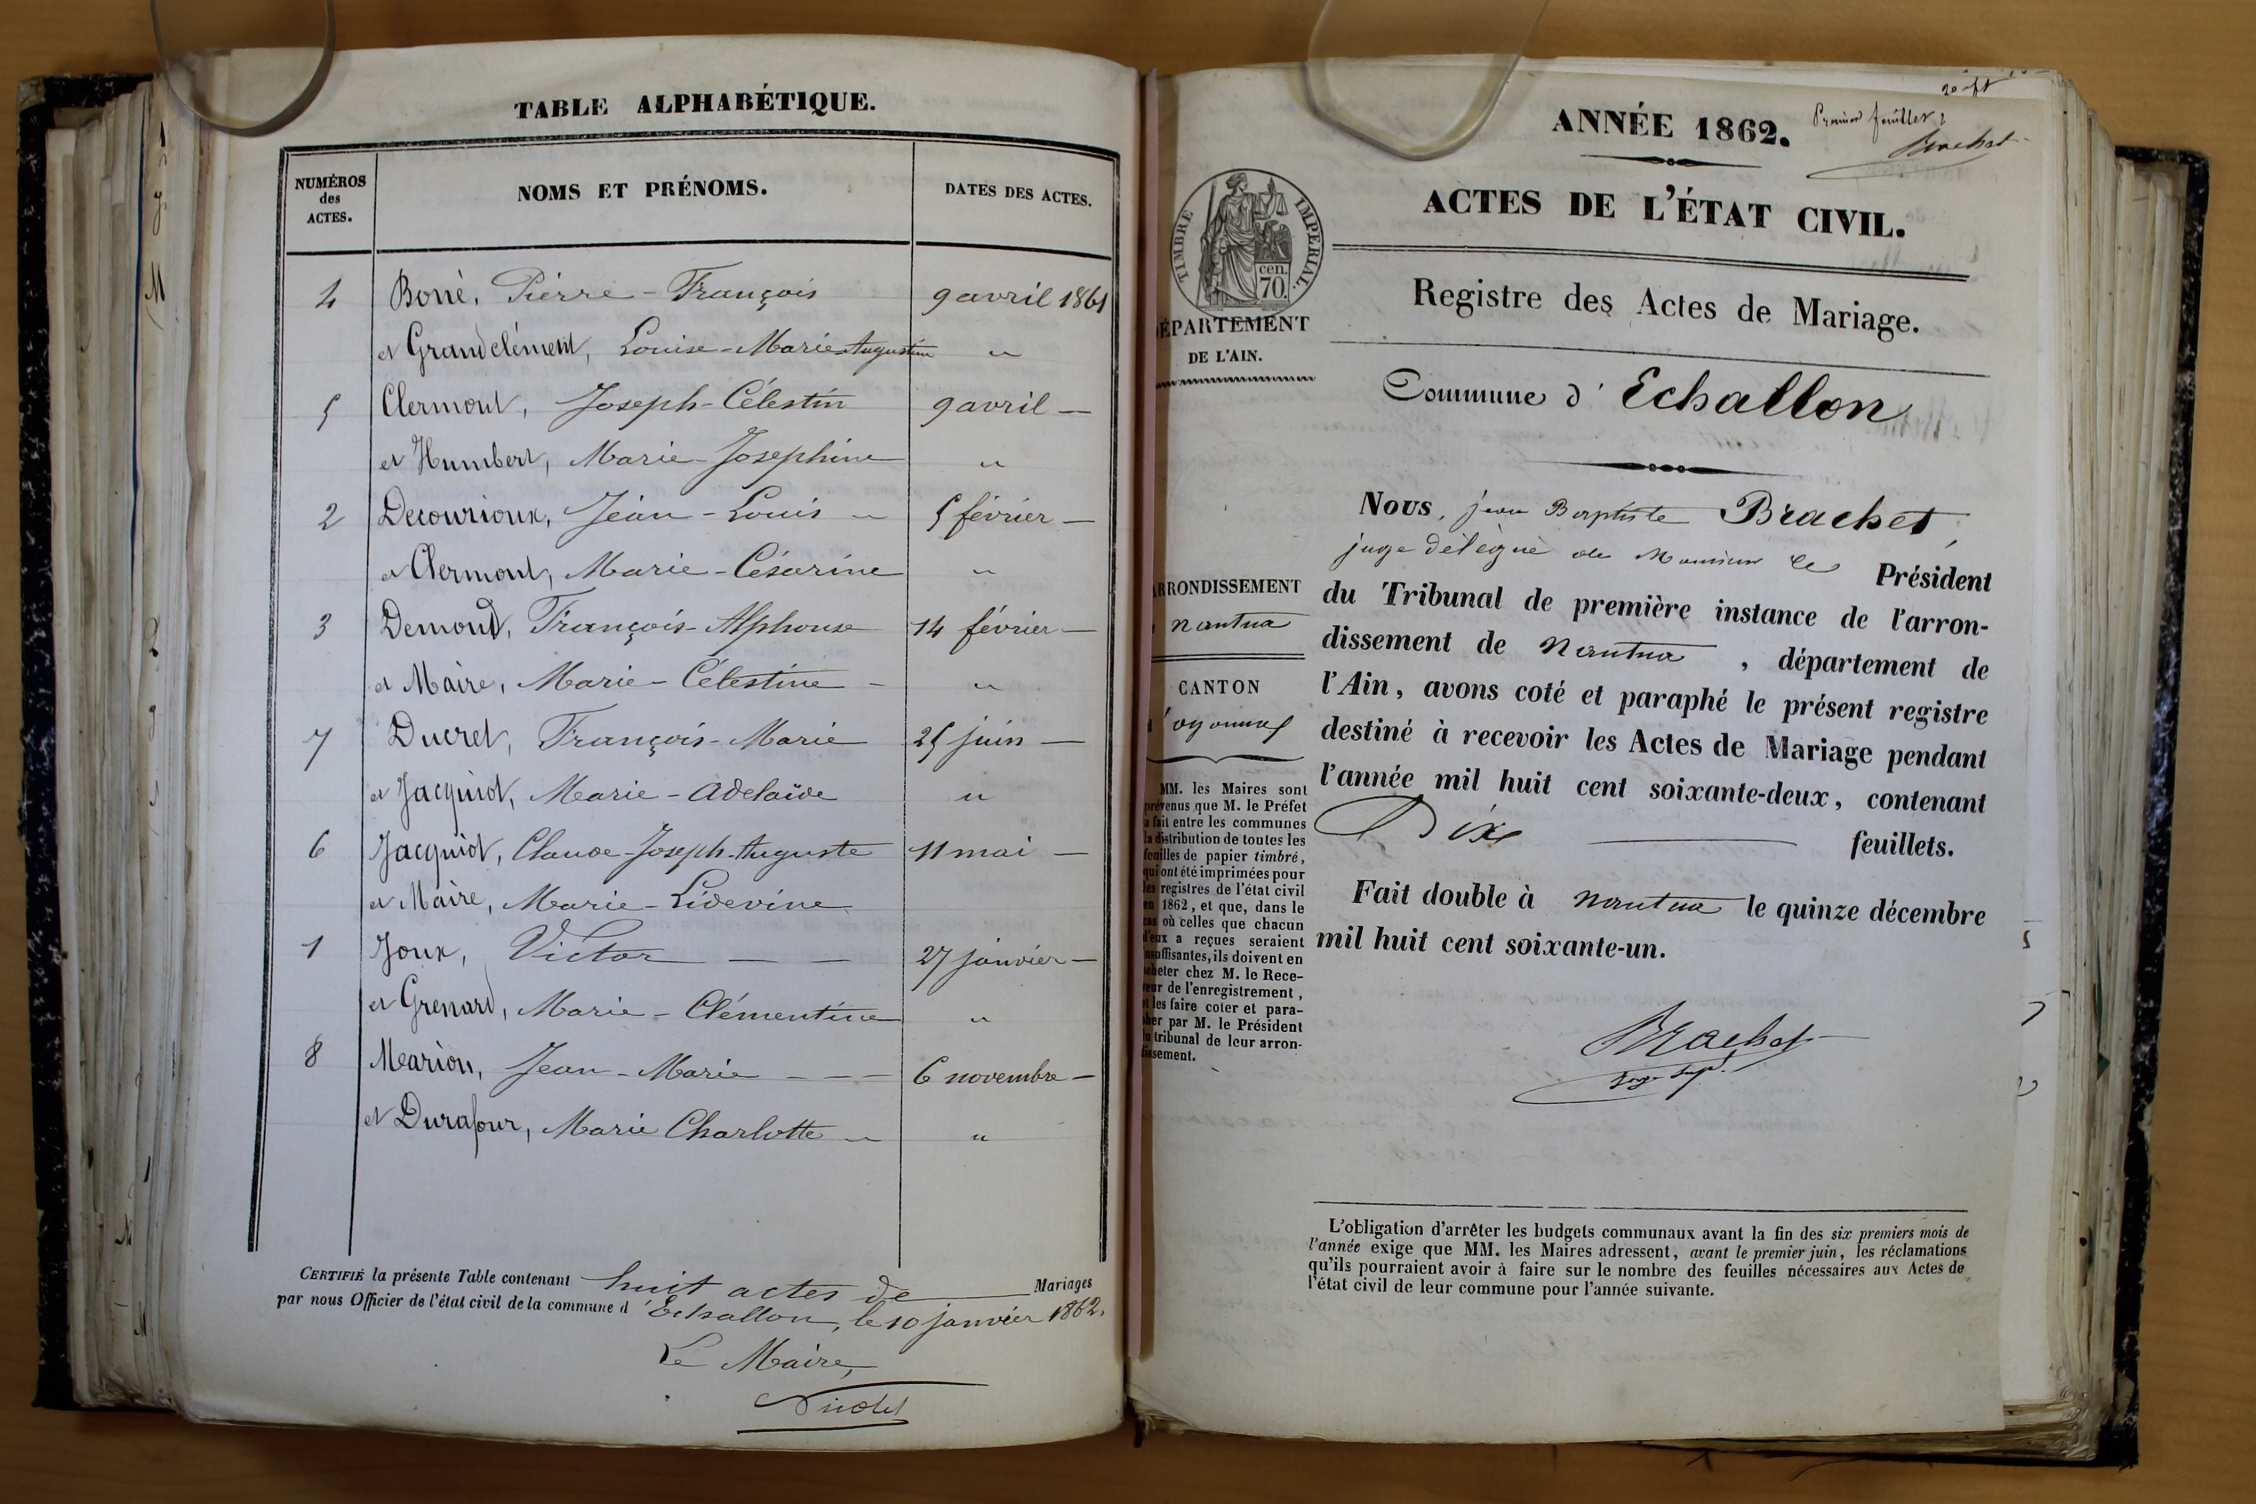 TABLE ALPHABÉTIQUE.
NUMÉROS des ACTES.
NOMS ET PRÉNOMS.
DATES DES ACTES.
4 Borré, Pierre-François 9 avril 1861
et Grandclément, Louise-Marie Augustine "
5 Clermont, Joseph-Célestin 9 avril —
et Humbert, Marie-Josephine "
2 Decourioux, Jean-Louis 5 février —
et Clermont, Marie-Césarine "
3 Demond, François-Alphonse 14 février —
et Maire, Marie-Célestine "
7 Ducret, François-Marie 25 juin —
et Jacquiot, Marie-Adelaïde "
6 Jacquiot, Claude-Joseph-Auguste 11 mai —
et Maire, Marie-Lidevine
1 Joux, Victor — — 27 janvier —
et Grenard, Marie-Clémentine "
8 Marion, Jean-Marie — — 6 novembre —
et Durafour, Marie Charlotte "
CERTIFIÉ la présente Table contenant huit actes de Mariages
par nous Officier de l'état civil de la commune d'Echallon, le 10 janvier 1862.
Le Maire,
20 ft
Premier feuillet
Brachet
ANNÉE 1862.
ACTES DE L'ÉTAT CIVIL.
TIMBRE IMPERIAL.
cen.
70.
DÉPARTEMENT
DE L'AIN.
Registre des Actes de Mariage.
Commune d'Echallon
Nous, jean Baptiste Brachet,
juge délégué de Monsieur le Président
du Tribunal de première instance de l'arron-
dissement de Nantua, département de
l'Ain, avons coté et paraphé le présent registre
destiné à recevoir les Actes de Mariage pendant
l'année mil huit cent soixante-deux, contenant
Dix feuillets.
Fait double à Nantua le quinze décembre
mil huit cent soixante-un.
Brachet
juge sup.
ARRONDISSEMENT
Nantua
CANTON
d'oyonnax
MM. les Maires sont
prévenus que M. le Préfet
a fait entre les communes
la distribution de toutes les
feuilles de papier timbré,
qui ont été imprimées pour
les registres de l'état civil
en 1862, et que, dans le
cas où celles que chacun
d'eux a reçues seraient
insuffisantes, ils doivent en
acheter chez M. le Rece-
veur de l'enregistrement,
et les faire coter et para-
pher par M. le Président
du tribunal de leur arron-
dissement.
L'obligation d'arrêter les budgets communaux avant la fin des six premiers mois de
l'année exige que MM. les Maires adressent, avant le premier juin, les réclamations
qu'ils pourraient avoir à faire sur le nombre des feuilles nécessaires aux Actes de
l'état civil de leur commune pour l'année suivante.